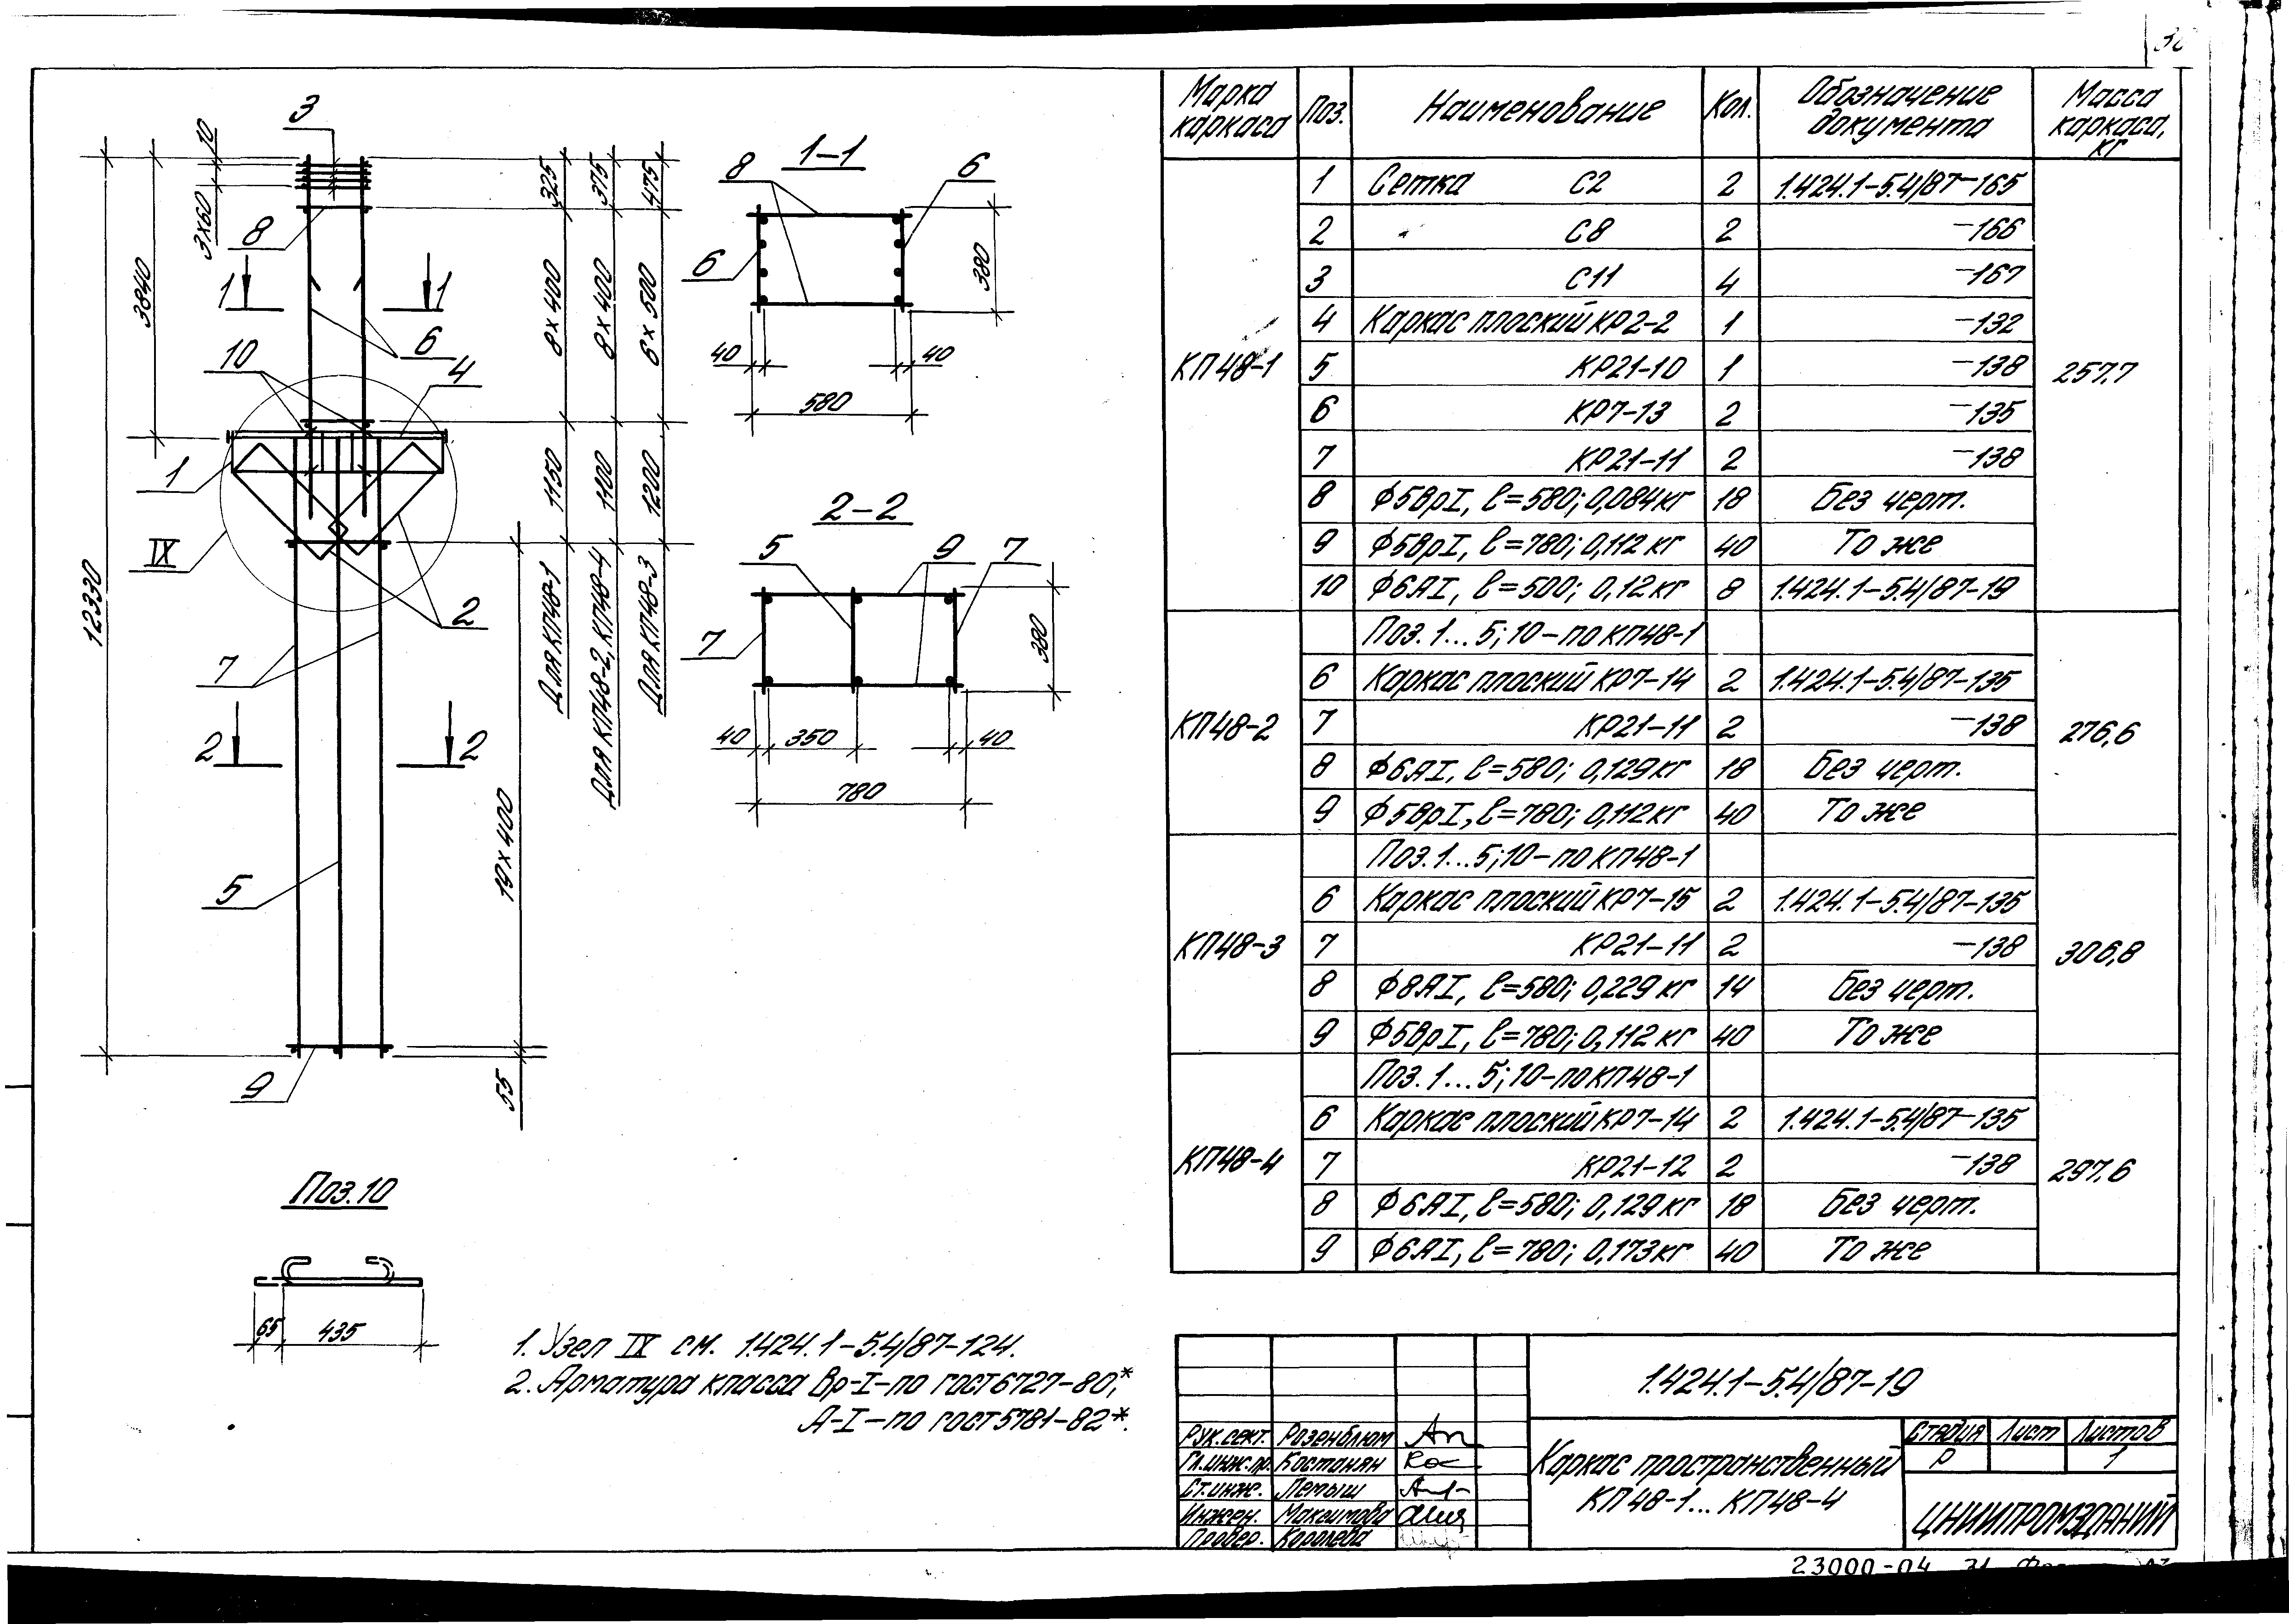 3
10
3×60
8
3840
12330
1 1
6
10
4
1
IX
2
7
2 2
5
9
325
375
475
8×400
8×400
6×500
1150
1100
1200
Для КП48-1
Для КП48-2, КП48-4
Для КП48-3
19×400
55
1-1
8
6
6
380
40
40
580
2-2
5
9
7
7
380
40
350
40
780
Поз.10
65
435
1. Узел IX см. 1.424.1-5.4/87-124.
2. Арматура класса Вр-I-по ГОСТ 6727-80,*
А-I-по ГОСТ 5781-82*.
Марка каркаса Поз. Наименование Кол. Обозначение документа Масса каркаса, кг
КП48-1 257,7
1 Сетка С2 2 1.424.1-5.4/87-165
2 " С8 2 -166
3 С11 4 -167
4 Каркас плоский КР2-2 1 -132
5 КР21-10 1 -138
6 КР7-13 2 -135
7 КР21-11 2 -138
8 Ф5ВрI, l=580; 0,084кг 18 Без черт.
9 Ф5ВрI, l=780; 0,112кг 40 То же
10 Ф6АI, l=500; 0,12кг 8 1.424.1-5.4/87-19
КП48-2 276,6
Поз. 1...5; 10-по КП48-1
6 Каркас плоский КР7-14 2 1.424.1-5.4/87-135
7 КР21-11 2 -138
8 Ф6АI, l=580; 0,129кг 18 Без черт.
9 Ф5ВрI, l=780; 0,112кг 40 То же
КП48-3 306,8
Поз. 1...5; 10-по КП48-1
6 Каркас плоский КР7-15 2 1.424.1-5.4/87-135
7 КР21-11 2 -138
8 Ф8АI, l=580; 0,229кг 14 Без черт.
9 Ф5ВрI, l=780; 0,112кг 40 То же
КП48-4 297,6
Поз. 1...5; 10-по КП48-1
6 Каркас плоский КР7-14 2 1.424.1-5.4/87-135
7 КР21-12 2 -138
8 Ф6АI, l=580; 0,129кг 18 Без черт.
9 Ф6АI, l=780; 0,173кг 40 То же
1.424.1-5.4/87-19
Рук.сект. Розенблюм
Гл.инж.пр. Бостанян
Ст.инж. Лемыш
Инжен. Максимова
Провер. Королева
Каркас пространственный
КП48-1...КП48-4
Стадия Лист Листов
Р 1
ЦНИИПРОМЗДАНИЙ
23000-04 31